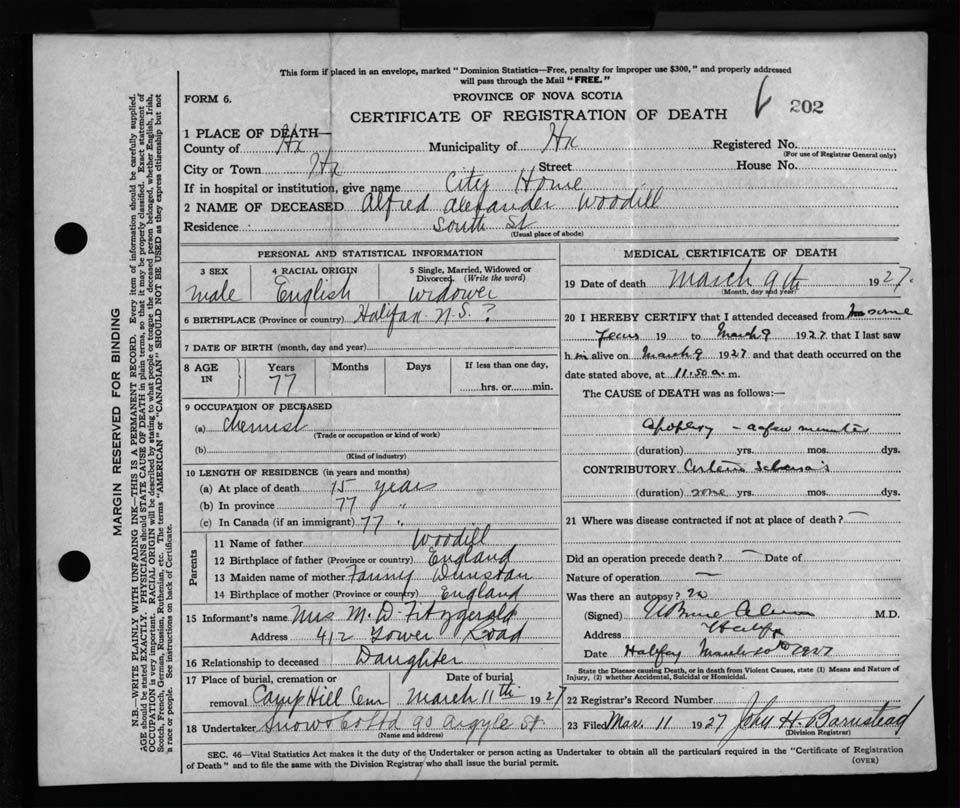 This form if placed in an envelope, marked "Dominion Statistics—Free, penalty for improper use $300," and properly addressed
will pass through the Mail "FREE."
FORM 6.
PROVINCE OF NOVA SCOTIA
202
CERTIFICATE OF REGISTRATION OF DEATH
1 PLACE OF DEATH—
County of Hx Municipality of Hx Registered No.
(For use of Registrar General only)
City or Town Hx Street House No.
If in hospital or institution, give name City Home
2 NAME OF DECEASED Alfred Alexander Woodill
Residence South St
(Usual place of abode)
PERSONAL AND STATISTICAL INFORMATION
3 SEX 4 RACIAL ORIGIN 5 Single, Married, Widowed or Divorced (Write the word)
Male English Widower
6 BIRTHPLACE (Province or country) Halifax N.S. ?
7 DATE OF BIRTH (month, day and year)
8 AGE IN Years Months Days If less than one day,
77 hrs. or min.
9 OCCUPATION OF DECEASED
(a) Chemist
(Trade or occupation or kind of work)
(b)
(Kind of industry)
10 LENGTH OF RESIDENCE (in years and months)
(a) At place of death 15 years
(b) In province 77 "
(c) In Canada (if an immigrant) 77 "
Parents
11 Name of father Woodill
12 Birthplace of father (Province or country) England
13 Maiden name of mother Fanny Dunstan
14 Birthplace of mother (Province or country) England
15 Informant's name Mrs M. D. Fitzgerald
Address 412 Tower Road
16 Relationship to deceased Daughter
17 Place of burial, cremation or removal Date of burial
Camp Hill Cem March 11th 1927
18 Undertaker Snow & Co Ltd 90 Argyle St.
(Name and address)
MEDICAL CERTIFICATE OF DEATH
19 Date of death March 9th 1927.
(Month, day and year)
20 I HEREBY CERTIFY that I attended deceased from some
years 19 to March 9 1927 that I last saw
him alive on March 9 1927 and that death occurred on the
date stated above, at 11.50 a. m.
The CAUSE OF DEATH was as follows:—
Apoplexy - a few minutes
(duration) yrs. mos. dys.
CONTRIBUTORY Arterio Sclerosis
(duration) some yrs. mos. dys.
21 Where was disease contracted if not at place of death? —
Did an operation precede death? — Date of
Nature of operation —
Was there an autopsy? no
(Signed) M.D.
Address Halifx
Date Halifax March 10th 1927
State the Disease causing Death, or in death from Violent Causes, state (1) Means and Nature of
Injury, (2) whether Accidental, Suicidal or Homicidal.
22 Registrar's Record Number
23 Filed Mar. 11 1927 John H. Barnstead
(Division Registrar)
SEC. 46—Vital Statistics Act makes it the duty of the Undertaker or person acting as Undertaker to obtain all the particulars required in the "Certificate of Registration
of Death" and to file the same with the Division Registrar who shall issue the burial permit.
(OVER)
MARGIN RESERVED FOR BINDING
N.B.—WRITE PLAINLY WITH UNFADING INK—THIS IS A PERMANENT RECORD. Every item of information should be carefully supplied.
AGE should be stated EXACTLY. PHYSICIANS should STATE CAUSE OF DEATH in plain terms, so that it may be properly classified. Exact statement of
OCCUPATION is very important. RACIAL ORIGIN will be described by stating to what people or tongue the deceased person belonged, whether English, Irish,
Scotch, French, German, Russian, Ruthenian, etc. The terms "AMERICAN" or "CANADIAN" SHOULD NOT BE USED as they express citizenship but not
a race or people. See instructions on back of Certificate.